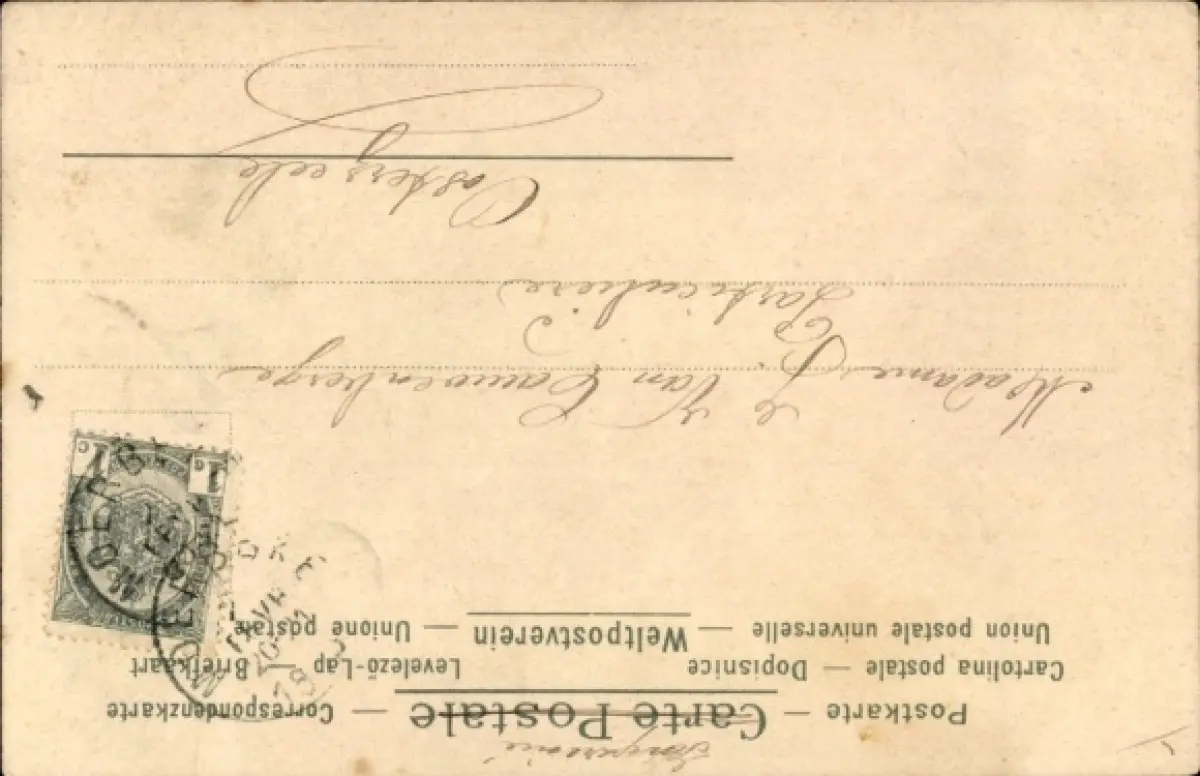 Imprimé
Postkarte — Carte Postale — Correspondenzkarte
Cartolina postale — Dopisnice Levelező-Lap — Briefkaart
Union postale universelle — Weltpostverein — Unione postale
1c 1c
MOERBEKE
Madame J. Van Cauwenberge
Particulière
Oosterzeele